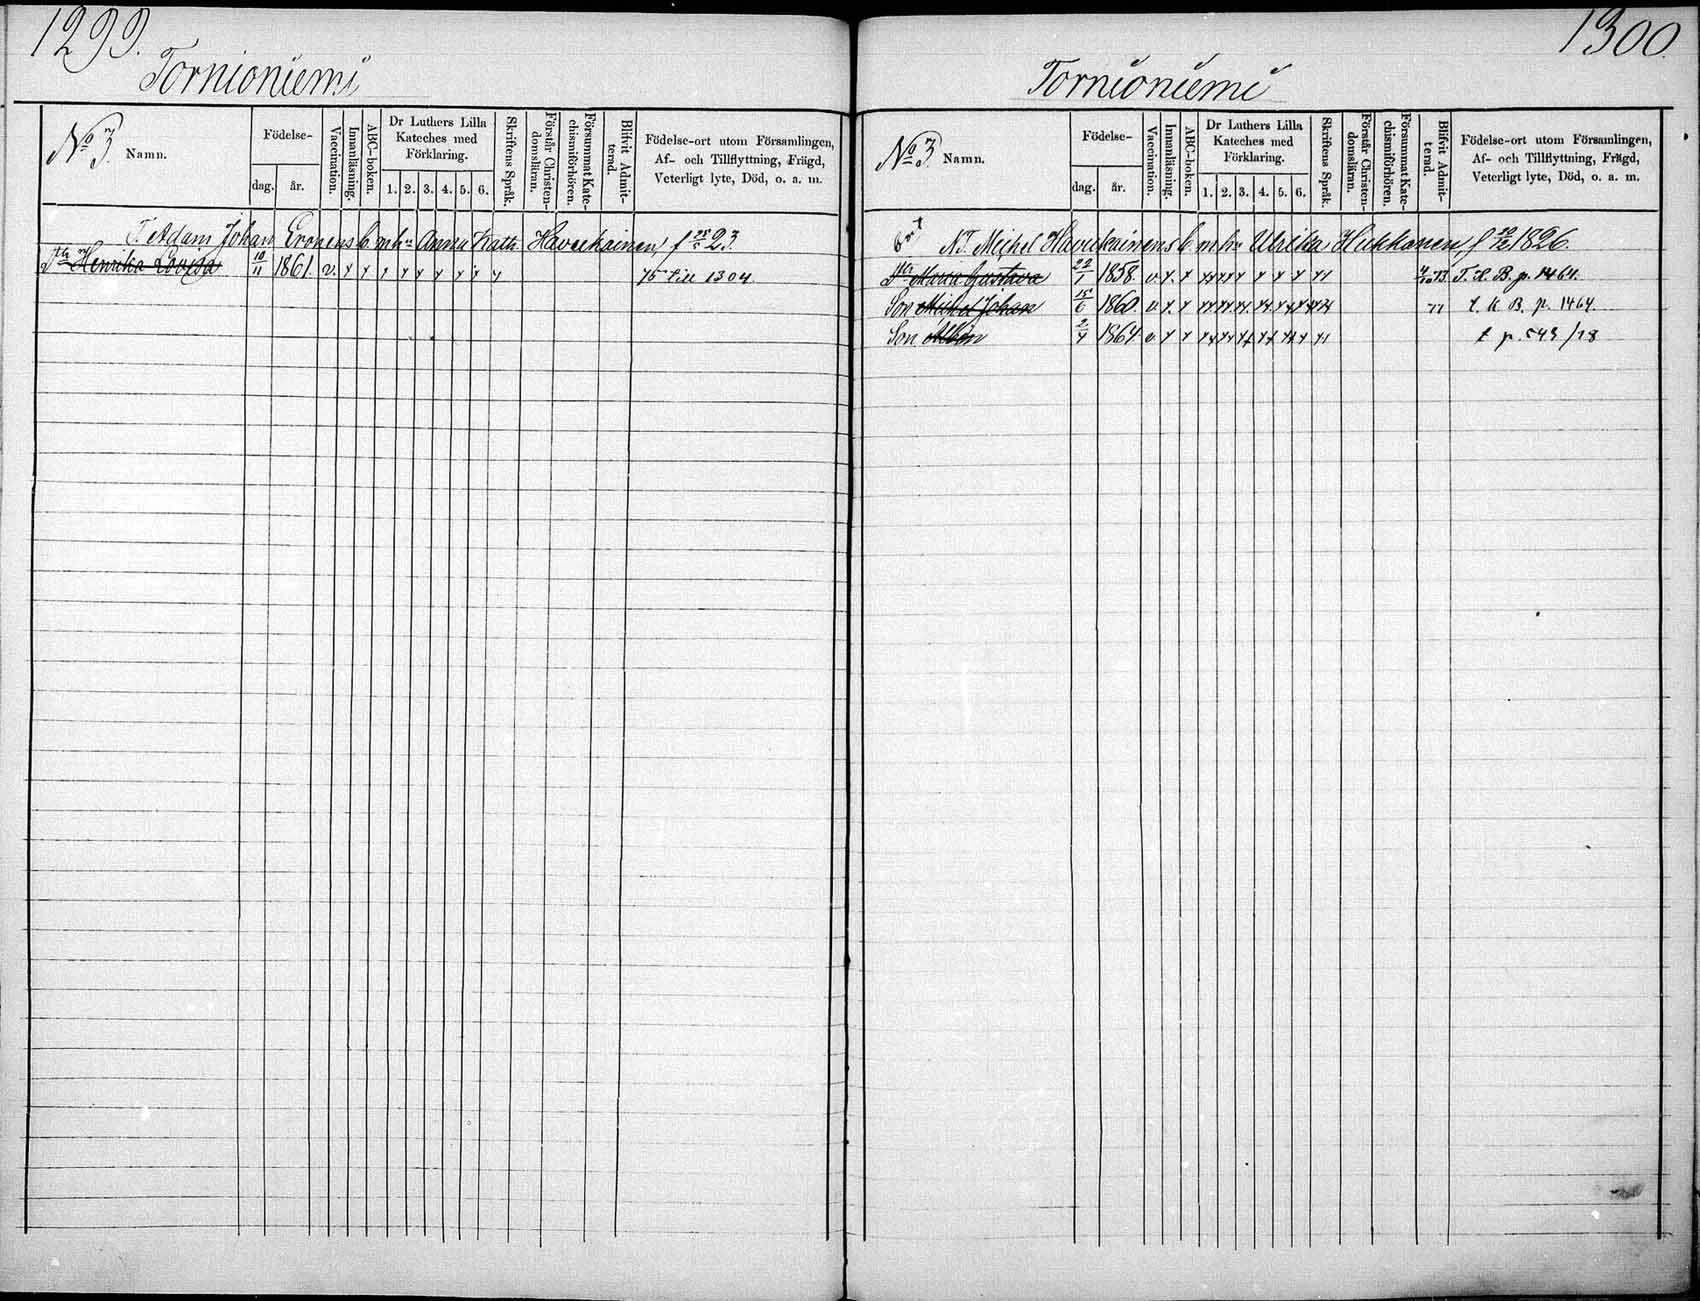 1299.
Tornioniemi
No 3. Namn.
Födelse-
dag. år.
Vaccination.
Innanläsning.
ABC-boken.
Dr Luthers Lilla
Kateches med
Förklaring.
1. 2. 3. 4. 5. 6.
Skriftens Språk.
Förstår Christen-
domsläran.
Försummat Kate-
chismiförhören.
Blifvit Admit-
terad.
Födelse-ort utom Församlingen,
Af- och Tillflyttning, Frägd,
Veterligt lyte, Död, o. a. m.
T. Adam Johan Eronens b. m. hu Anna Kath. Haveukainen, f 23.
Dtr Henrika Lovisa 10/11 1861. v. 75 till 1304
1300.
Tornioniemi
No 3. Namn.
Födelse-
dag. år.
Vaccination.
Innanläsning.
ABC-boken.
Dr Luthers Lilla
Kateches med
Förklaring.
1. 2. 3. 4. 5. 6.
Skriftens Språk.
Förstår Christen-
domsläran.
Försummat Kate-
chismiförhören.
Blifvit Admit-
terad.
Födelse-ort utom Församlingen,
Af- och Tillflyttning, Frägd,
Veterligt lyte, Död, o. a. m.
N.T. Michel Havukainens b. m. hu Ulrika Hukkanen, f 1826.
Dtr Maria Gustava 22/1 1858. v. 73. T. K. B. p. 1464.
Son Michel Johan 15/6 1860. v. 77 t. K. B. p. 1464.
Son Albin 2/4 1864 v. t p. 543/78